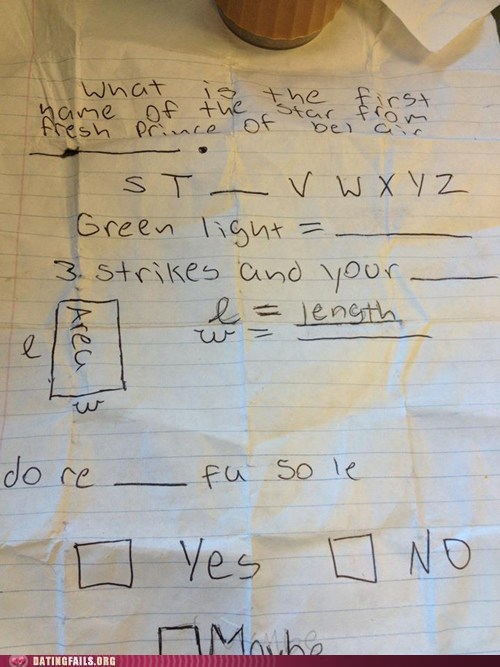 What is the first
name of the star from
fresh prince of bel air
________ .
S T ___ V W X Y Z
Green light = ________
3 strikes and your _____
l = length
w = ________
Area
l
w
do re ____ fa so le
Yes NO
Maybe
DATINGFAILS.ORG